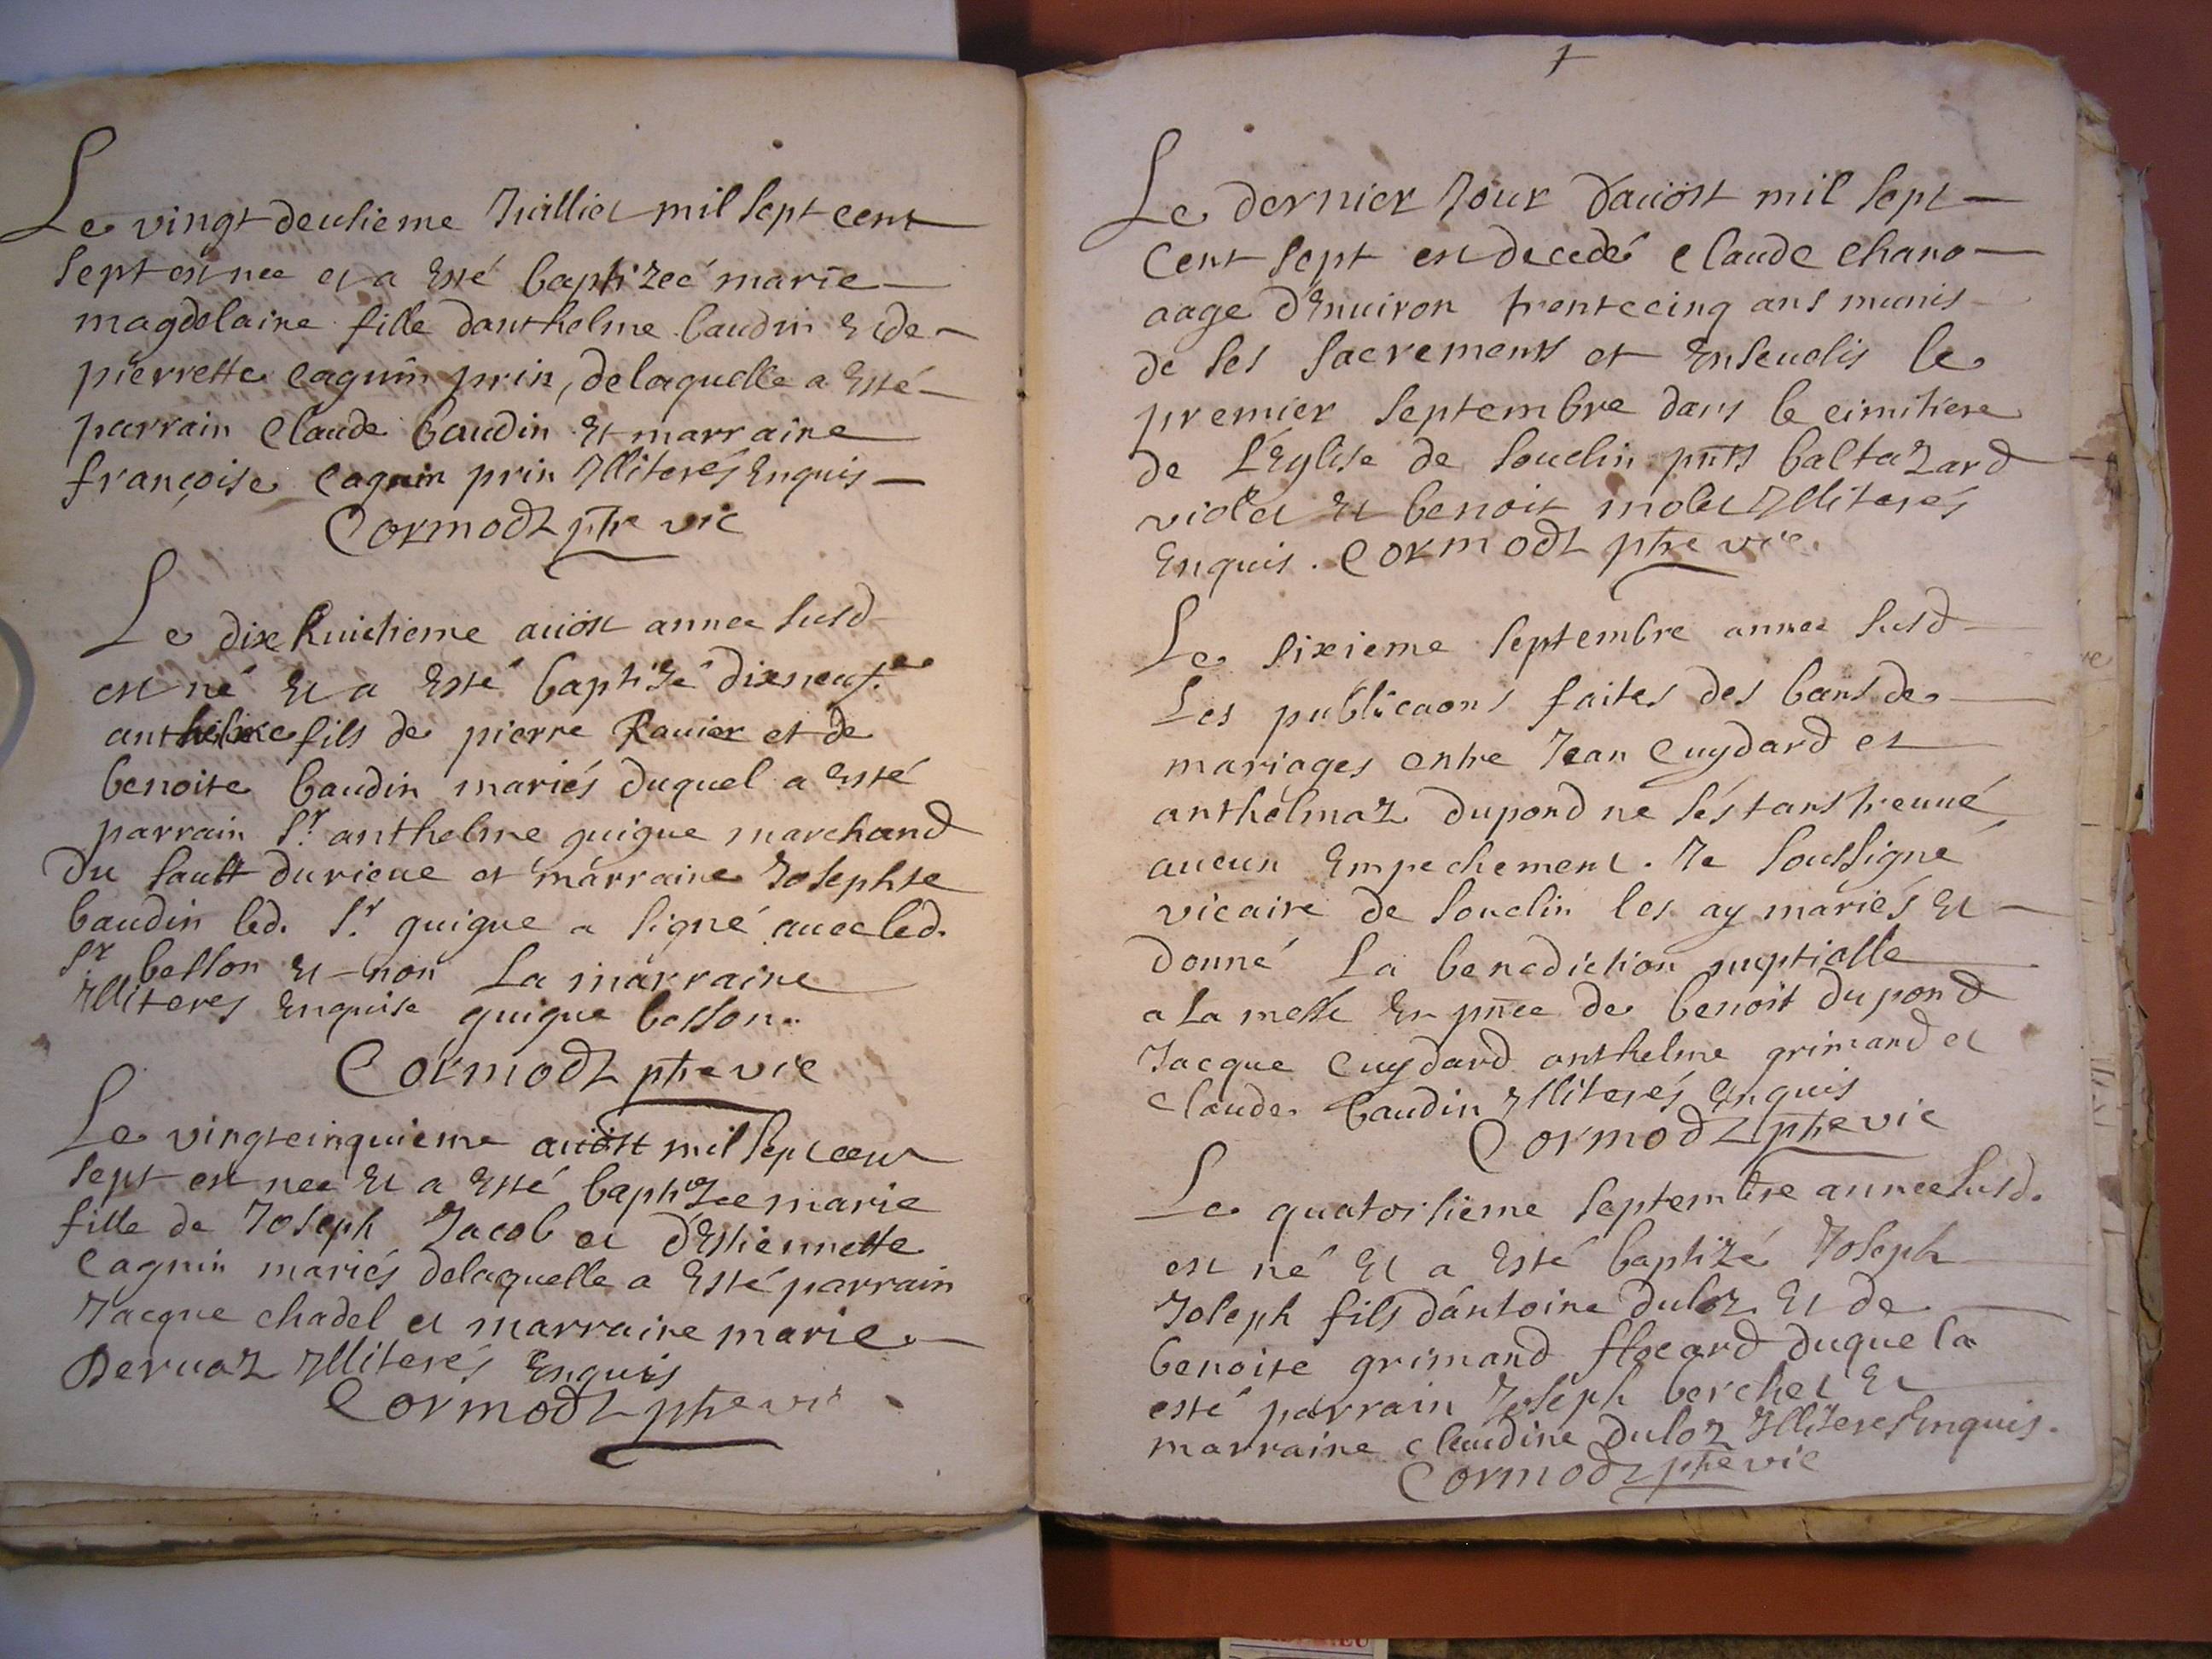 Le vingt deusieme Juillet mil sept cent
sept est née et a esté baptizeé marie
magdelaine fille danthelme baudin et de
pierrette cagnin prin, delaquelle a esté
parrain Claude baudin et marraine
françoise cagnin prin Illiterés Enquis
Cormodz ptre vic
Le dix huictieme auost année susd
est né et a esté baptisé dixneuf.e
anthelme fils de pierre Ravier et de
benoite baudin mariés duquel a esté
parrain sr. anthelme guigue marchand
du sault
et marraine Josephte
baudin led. sr. guigue a signé avec led.
sr besson et non La marraine
Illiteres Enquise guigue besson.
Cormodz ptre vic
Le vingtcinquieme auost mil sept cent
sept est nee et a esté baptizee marie
fille de Joseph Jacob et d'Estiennette
Cagnin mariés delaquelle a Esté parrain
Jacque chadel et marraine marie
Dervaz Illiterés Enquis
Cormodz ptre vic
+
Le dernier Jour dauost mil sept
Cent sept est decedé Claude Chano
aage d'Enuiron trentecinq ans munis
de ses sacrements et Enseuelis le
premier septembre dans le cimitiere
de L'Eglise de souclin pnts baltazard
violet et benoit molet Illiterés
Enquis. Cormodz ptre vic.
Le sixieme septembre annee susd
Les publicaons faites des bans de
mariages entre Jean Cuydard et
anthelmaz dupond ne s'éstant treuué
aucun Empechement. Je soussigné
vicaire de souclin les ay mariés et
donné La benediction nuptialle
a La messe En pnce de benoit dupond
Jacque Cuydard anthelme grimand et
Claude baudin Illiterés Enquis
Cormodz ptre vic
Le quatorsieme septembre annee susd.
est né et a esté baptizé Joseph
Joseph fils d'antoine duloz et de
benoite grimand flocard duquel a
esté parrain Joseph berchet et
marraine claudine duloz Illiteres Enquis.
Cormodz ptre vic